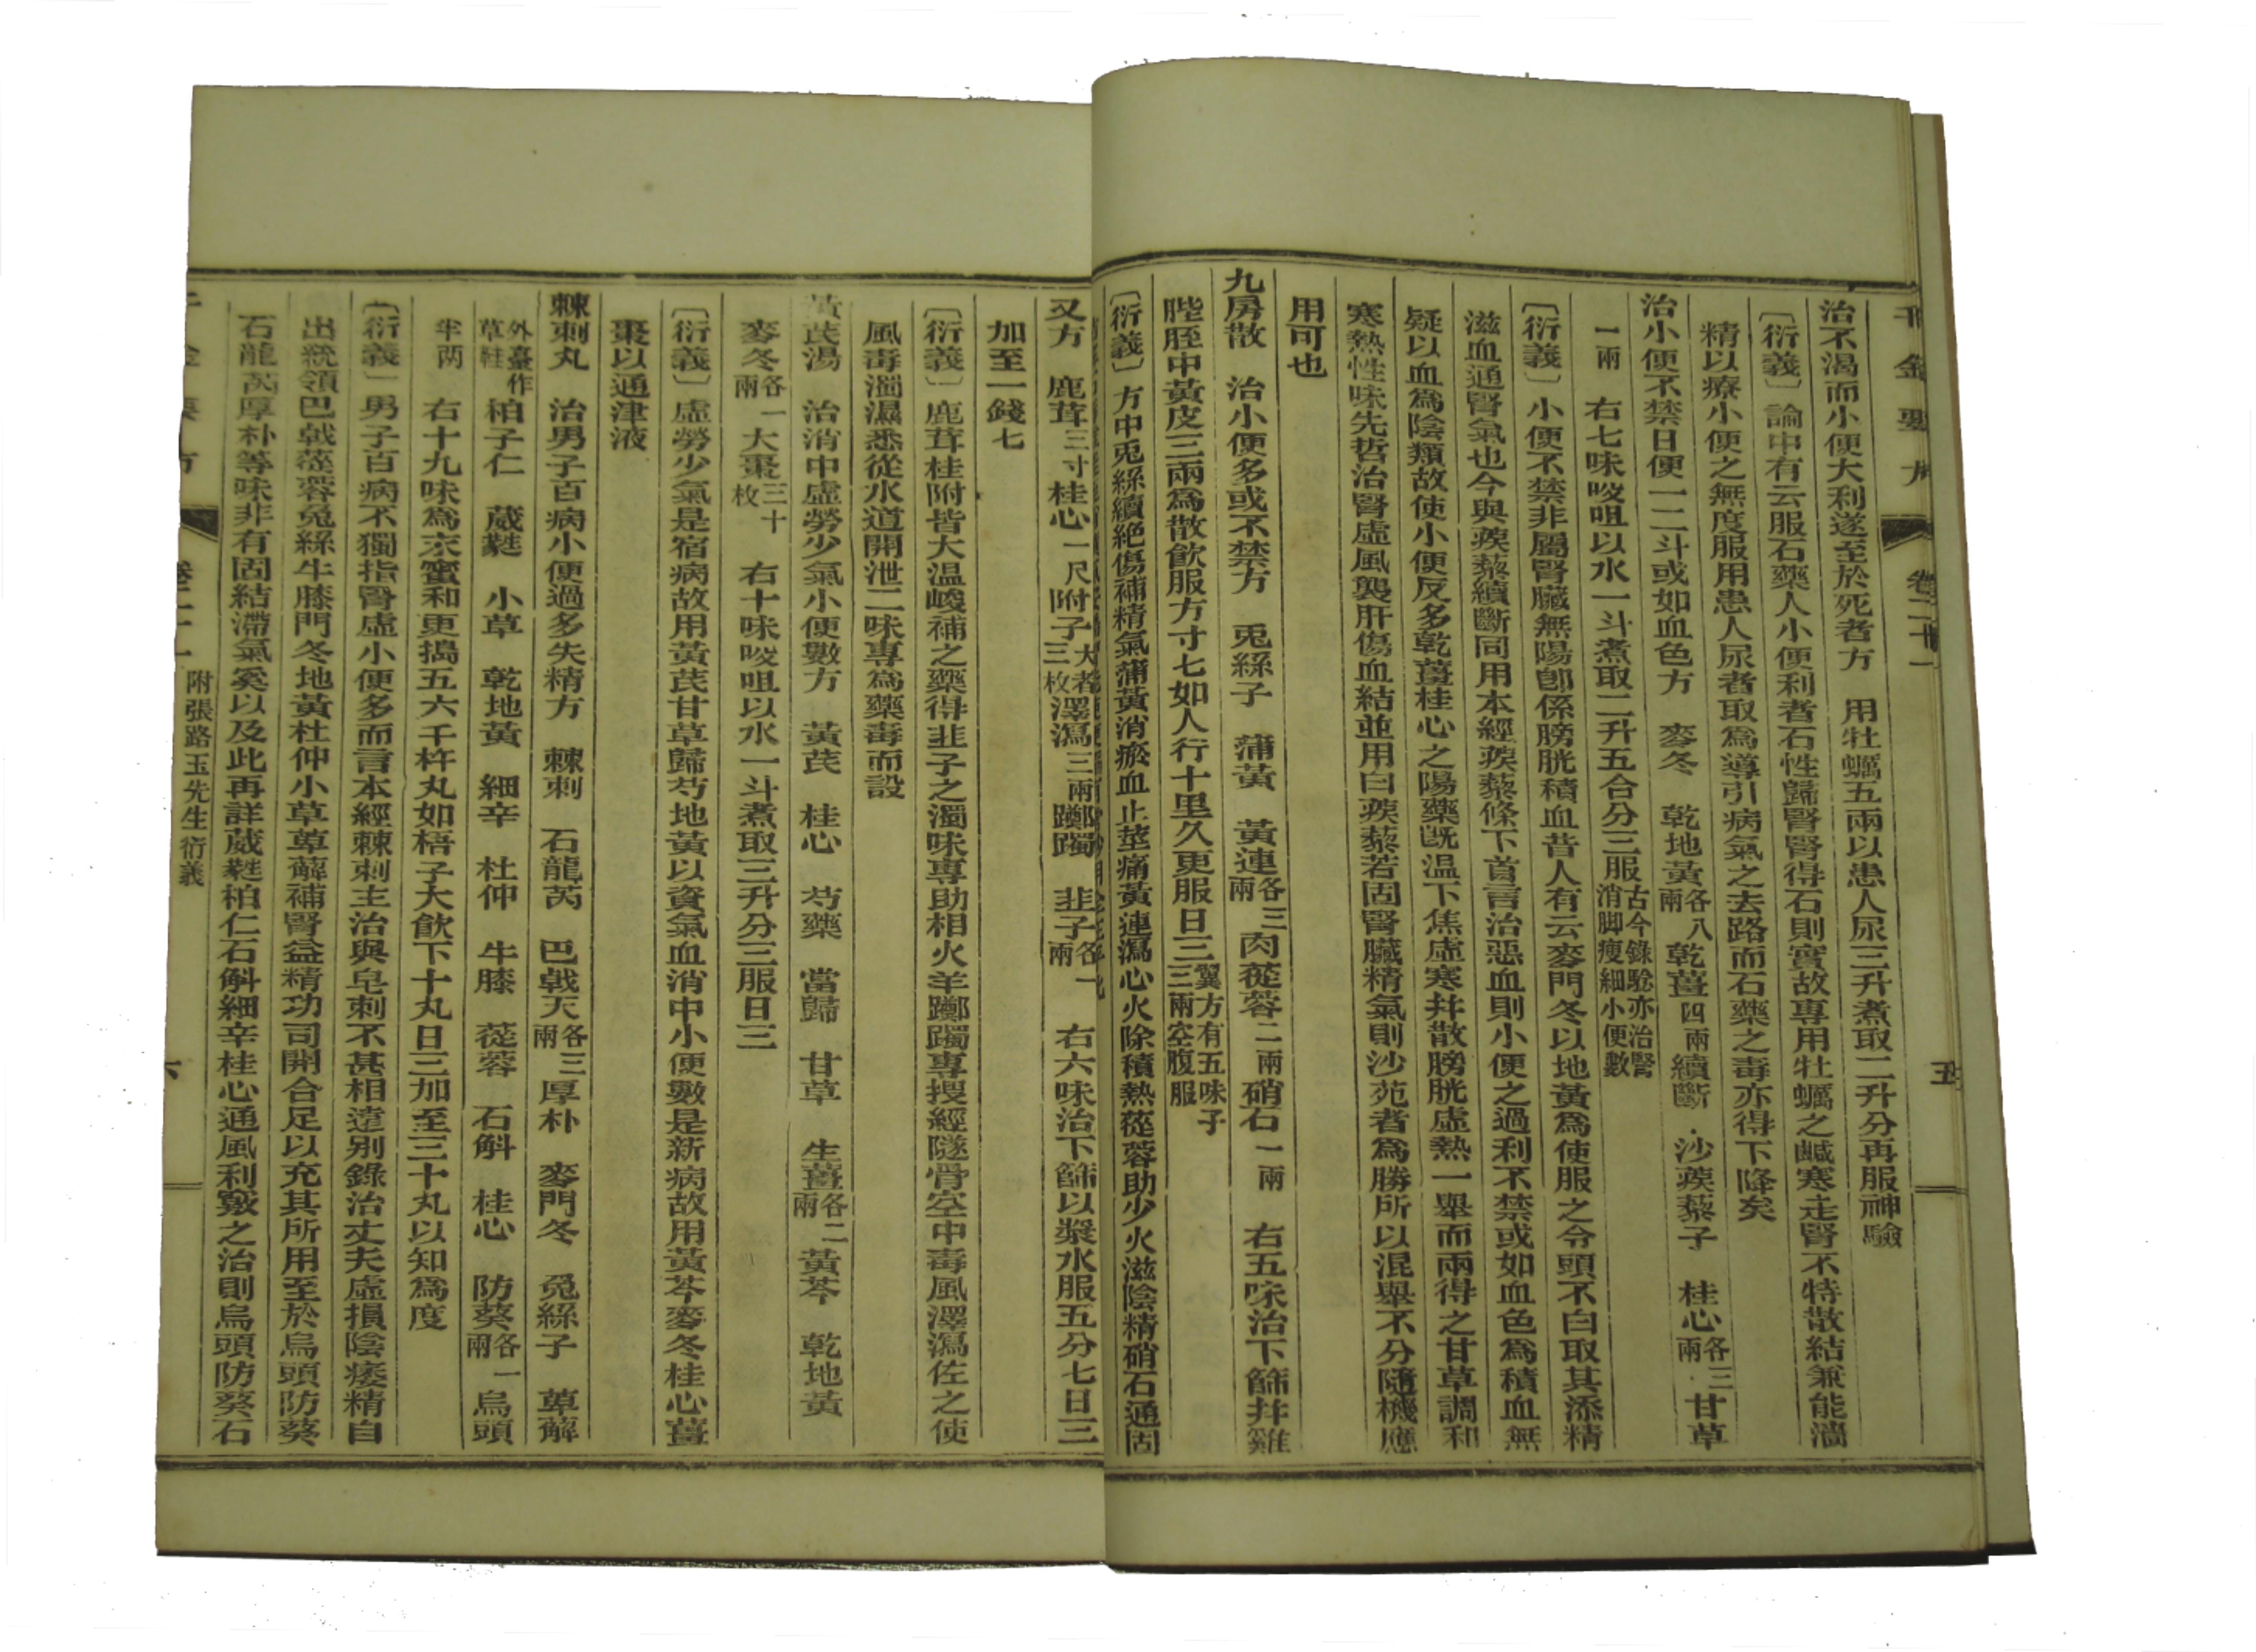 千金要方 卷二十一 五
治不渴而小便大利遂至於死者方 用牡蠣五兩以患人尿三升煮取二升分再服神驗
〔衍義〕論中有云服石藥人小便利者石性歸腎腎得石則實故專用牡蠣之鹹寒走腎不特散結兼能濇
精以療小便之無度服用患人尿者取爲導引病氣之去路而石藥之毒亦得下降矣
治小便不禁日便一二斗或如血色方 麥冬 乾地黃各八兩乾薑四兩續斷 沙蒺藜子 桂心各三兩甘草
一兩 右七味㕮咀以水一斗煮取二升五合分三服古今錄驗亦治腎消脚瘦細小便數
〔衍義〕小便不禁非屬腎臟無陽卽係膀胱積血昔人有云麥門冬以地黃爲使服之令頭不白取其添精
滋血通腎氣也今與蒺藜續斷同用本經蒺藜條下首言治惡血則小便之過利不禁或如血色爲積血無
疑以血爲陰類故使小便反多乾薑桂心之陽藥旣温下焦虛寒幷散膀胱虛熱一舉而兩得之甘草調和
寒熱性味先哲治腎虛風襲肝傷血結並用白蒺藜若固腎臟精氣則沙苑者爲勝所以混舉不分隨機應
用可也
九房散 治小便多或不禁方 兎絲子 蒲黃 黃連各三兩肉蓯蓉二兩硝石一兩 右五味治下篩幷雞
膍胵中黃皮三兩爲散飲服方寸七如人行十里久更服日三翼方有五味子三兩空腹服
〔衍義〕方中兎絲續絶傷補精氣蒲黃消瘀血止莖痛黃連瀉心火除積熱蓯蓉助少火滋陰精硝石通固
又方 鹿茸三寸桂心一尺附子大者三枚澤瀉三兩躑躅 韭子各一兩 右六味治下篩以漿水服五分七日三
加至一錢七
〔衍義〕鹿茸桂附皆大温峻補之藥得韭子之濁味專助相火羊躑躅專搜經隧骨空中毒風澤瀉佐之使
風毒濁濕悉從水道開泄二味專爲藥毒而設
黃芪湯 治消中虛勞少氣小便數方 黃芪 桂心 芍藥 當歸 甘草 生薑各二兩黃芩 乾地黃
麥冬各一兩大棗三十枚 右十味㕮咀以水一斗煮取三升分三服日三
〔衍義〕虛勞少氣是宿病故用黃芪甘草歸芍地黃以資氣血消中小便數是新病故用黃芩麥冬桂心薑
棗以通津液
棘刺丸 治男子百病小便過多失精方 棘刺 石龍芮 巴戟天各三兩厚朴 麥門冬 兔絲子 萆薢
外臺作草鞋柏子仁 葳蕤 小草 乾地黃 細辛 杜仲 牛膝 蓯蓉 石斛 桂心 防葵各一兩烏頭
半两 右十九味爲末蜜和更搗五六千杵丸如梧子大飲下十丸日三加至三十丸以知爲度
〔衍義〕男子百病不獨指腎虛小便多而言本經棘刺主治與皂刺不甚相遠別錄治丈夫虛損陰痿精自
出統領巴戟蓯蓉兔絲牛膝門冬地黃杜仲小草萆薢補腎益精功司開合足以充其所用至於烏頭防葵
石龍芮厚朴等味非有固結滯氣奚以及此再詳葳蕤柏仁石斛細辛桂心通風利竅之治則烏頭防葵石
千金要方 卷二十一 附張路玉先生衍義 六